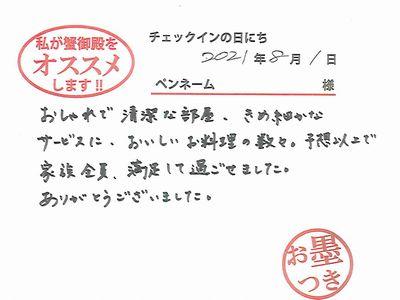 私が蟹御殿を
オススメ
します!!
チェックインの日にち
2021年8月1日
ペンネーム 様
おしゃれで清潔な部屋、きめ細かな
サービスに、おいしいお料理の数々。予想以上で
家族全員、満足して過ごせました。
ありがとうございました。
お墨
つき